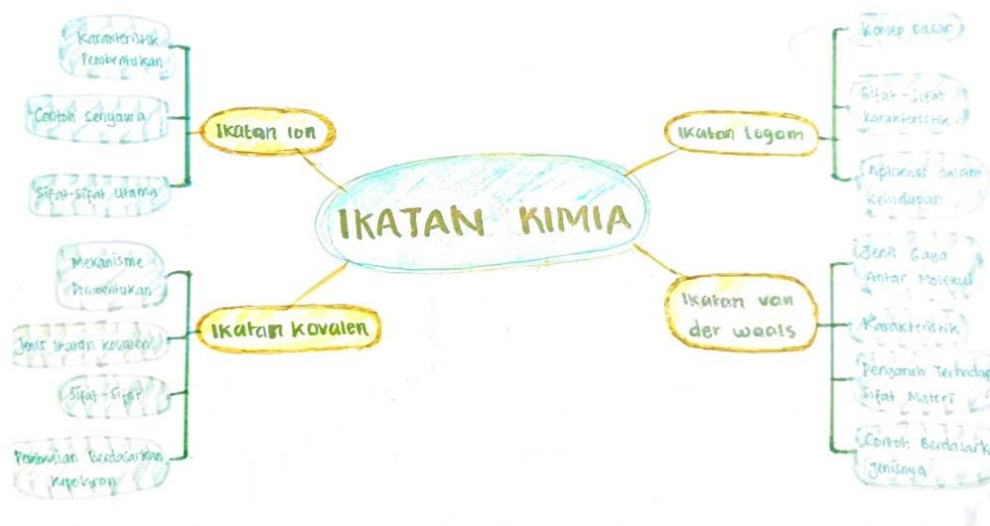 IKATAN KIMIA
Ikatan Ion
Karakteristik
Pembentukan
Contoh Senyawa
Sifat-Sifat Utama
Ikatan Kovalen
Mekanisme
Pembentukan
Jenis Ikatan Kovalen
Sifat-Sifat
Berdasarkan
Ikatan Logam
Konsep Dasar
Sifat-Sifat
Karakteristik
Aplikasi dalam
Kehidupan
Ikatan van
der waals
Jenis Gaya
Antar Molekul
Karakteristik
Pengaruh Terhadap
Sifat Materi
Contoh
Jenisnya